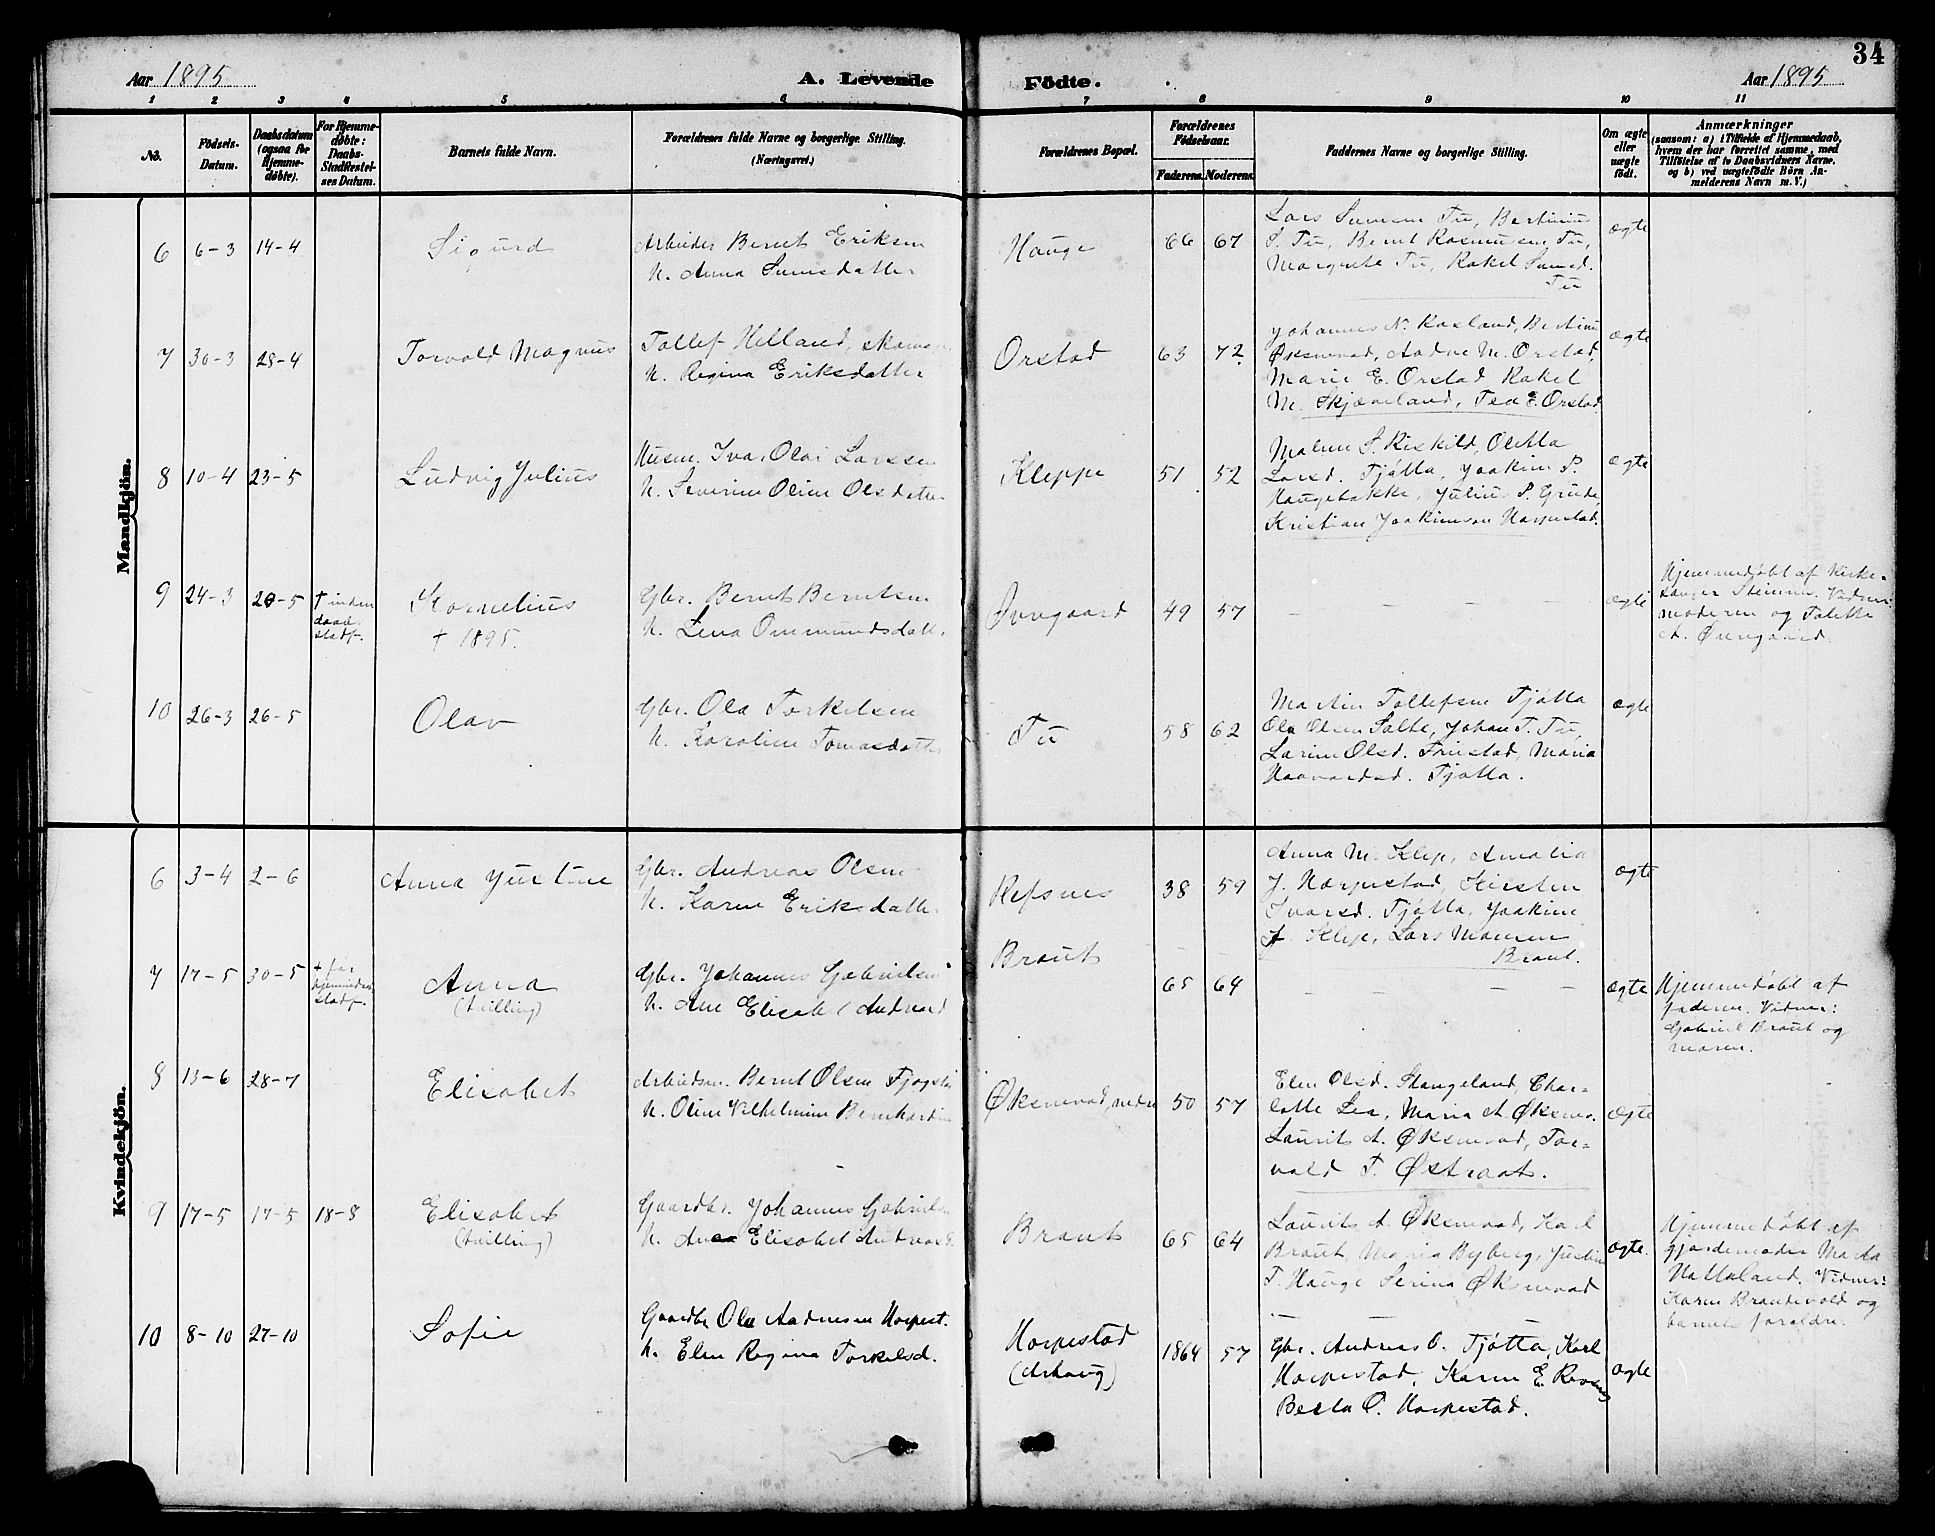 34
Aar 1895
A. Levende
Födte.
Aar 1895
1 2 3 4 5 6 7 8 9 10 11
No.
Födsels-
Datum.
Daabsdatum
(ogsaa for
Hjemme-
döbte).
For Hjemme-
döbte:
Daabs-
Stadfæstel-
ses Datum.
Barnets fulde Navn.
Forældrenes fulde Navne og borgerlige Stilling.
(Næringsvei.)
Forældrenes Bopæl.
Forældrenes
Födselsaar.
Faderens. Moderens.
Faddernes Navne og borgerlige Stilling.
Om ægte
eller
uægte
födt.
Anmærkninger
(saasom: a) i Tilfælde af Hjemmedaab,
hvem der har forrettet samme, med
Tilföielse af to Daabsvidners Navne,
og b) ved uægtefödte Börn An-
melderens Navn m. V.)
Mandkjön.
6 6-3 14-4 Sigurd
Arbeider Bernt Eriksen
H. Anna
Hauge 66 67
Lars Tu,
S. Tu, Bernt Rasmussen Tu,
Margrete Tu, Rakel
Tu
ægte
7 30-3 28-4 Torvald Magnus
Tollef Helland,
H. Regina Eriksdatter
Orstad 63 72
Johannes N. Kasland,
Øksnevad, Aadne M. Orstad,
Marie E. Orstad, Rakel
M. Skjæveland, Tea E. Orstad
ægte
8 10-4 23-5 Ludvig Julius
Husm. Ivar Olai Larssen
H. Severine Oline Olsdatter
Kleppe 51 52
Malene S. Riskild, Oletta
Larsd. Tjøtta, Joakim P.
Haugebakke, Julius P. Grude,
Kristian Joakimson Horpestad.
ægte
9 24-3 20-5 † inden
stadf.
Kornelius
† 1895.
Gbr. Bernt Berntsen
H. Lena Ommundsdatt.
49 57
— — — —
ægte
Hjemmedøbt af Kirke-
sanger Vidner:
moderen og
A.
10 26-3 26-5 Olav
Gbr. Ola Torkelsen
H. Karoline Tomasdatter
Tu 58 62
Martin Tollefsen Tjøtta
Ola Olsen Salte, Johan T. Tu,
Larine Olsd. Maria
Haavardsd. Tjøtta.
ægte
Kvindekjön.
6 3-4 2-6 Anna Justine
Gbr. Andreas Olsen
H. Karen Eriksdatt.
Refsnes 38 59
Anna M. Klep, Amalia
J. Horpestad, Kirsten
Ivarsd. Tjøtta, Joakim
A. Klep, Lars Monsen
Braut.
ægte
7 17-5 30-5 † før
stadf.
Anna
(tvilling)
Gbr. Johannes Gabrielsen
H. Ane Elisabet
Braut 65 64
— — — —
ægte
Hjemmedøbt af
faderen. Vidner:
Gabriel Braut og
maren.
8 13-6 28-7 Elisabet
Arbeidsm. Bernt Olsen
H. Oline Vilhelmine
Øksnevad, nedre 50 57
Elen Olsd. Stangeland, Char-
lotte Lea, Maria A. Øksnev.
Laurits A. Øksnevad, Tor-
vald T. Østraat.
ægte
9 17-5 17-5 18-8 Elisabet
(tvilling)
Gaardbr. Johannes Gabrielsen
H. Ane Elisabet Andreasd.
Braut 65 64
Laurits A. Øksnevad, Karl
Braut, Maria Byberg, Justine
T. Hauge Serina Øksnevad
ægte.
Hjemmedøbt af
gjordemoder Marta
Hattaland. Vidner:
Karen Brandevold og
barnets forældre.
10 8-10 27-10 Sofie
Gaardbr Ola Aadnesen Horpest.
H. Elen Regina Torkelsd.
Horpestad
(Arhaug)
1864 57
Gbr. Andreas O. Tjøtta, Karl
Horpestad, Karen E.
Berta O. Horpestad.
ægte